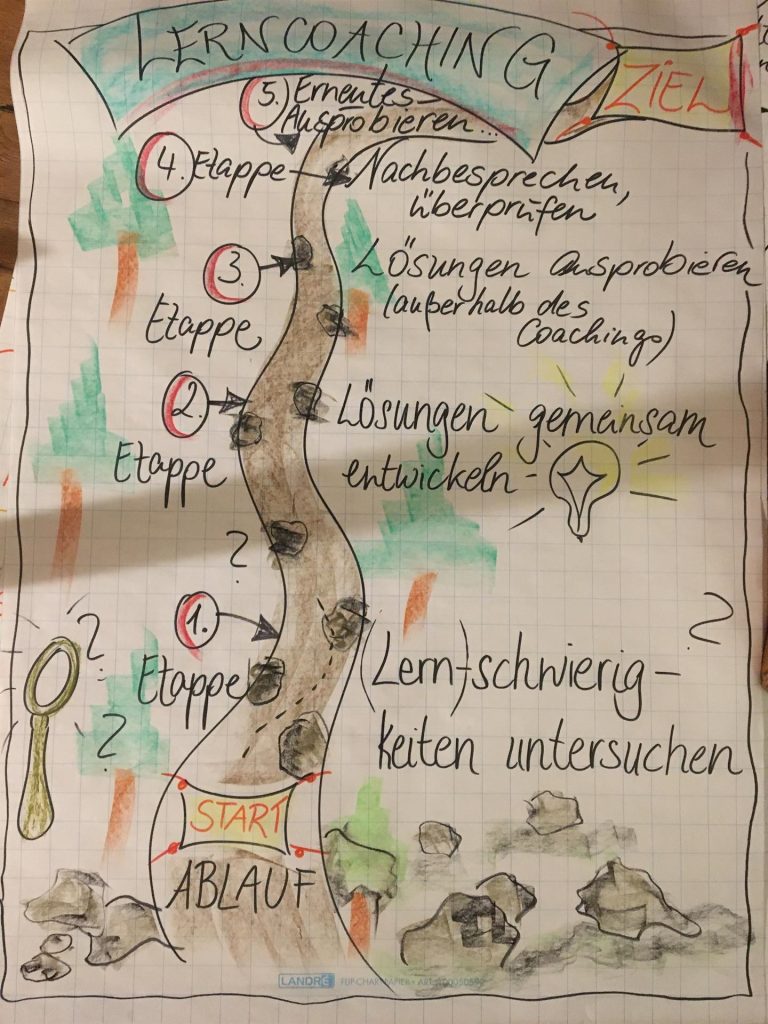 LERNCOACHING
ZIEL
5. Erneutes
Ausprobieren...
4. Etappe
Nachbesprechen,
überprüfen
3.
Etappe
Lösungen ausprobieren
(außerhalb des
Coachings)
2.
Etappe
Lösungen gemeinsam
entwickeln
?
1.
Etappe
?
?
?
(Lern-)schwierig-
keiten untersuchen
START
ABLAUF
LANDRÉ FLIP-CHARTPAPIER • ART.